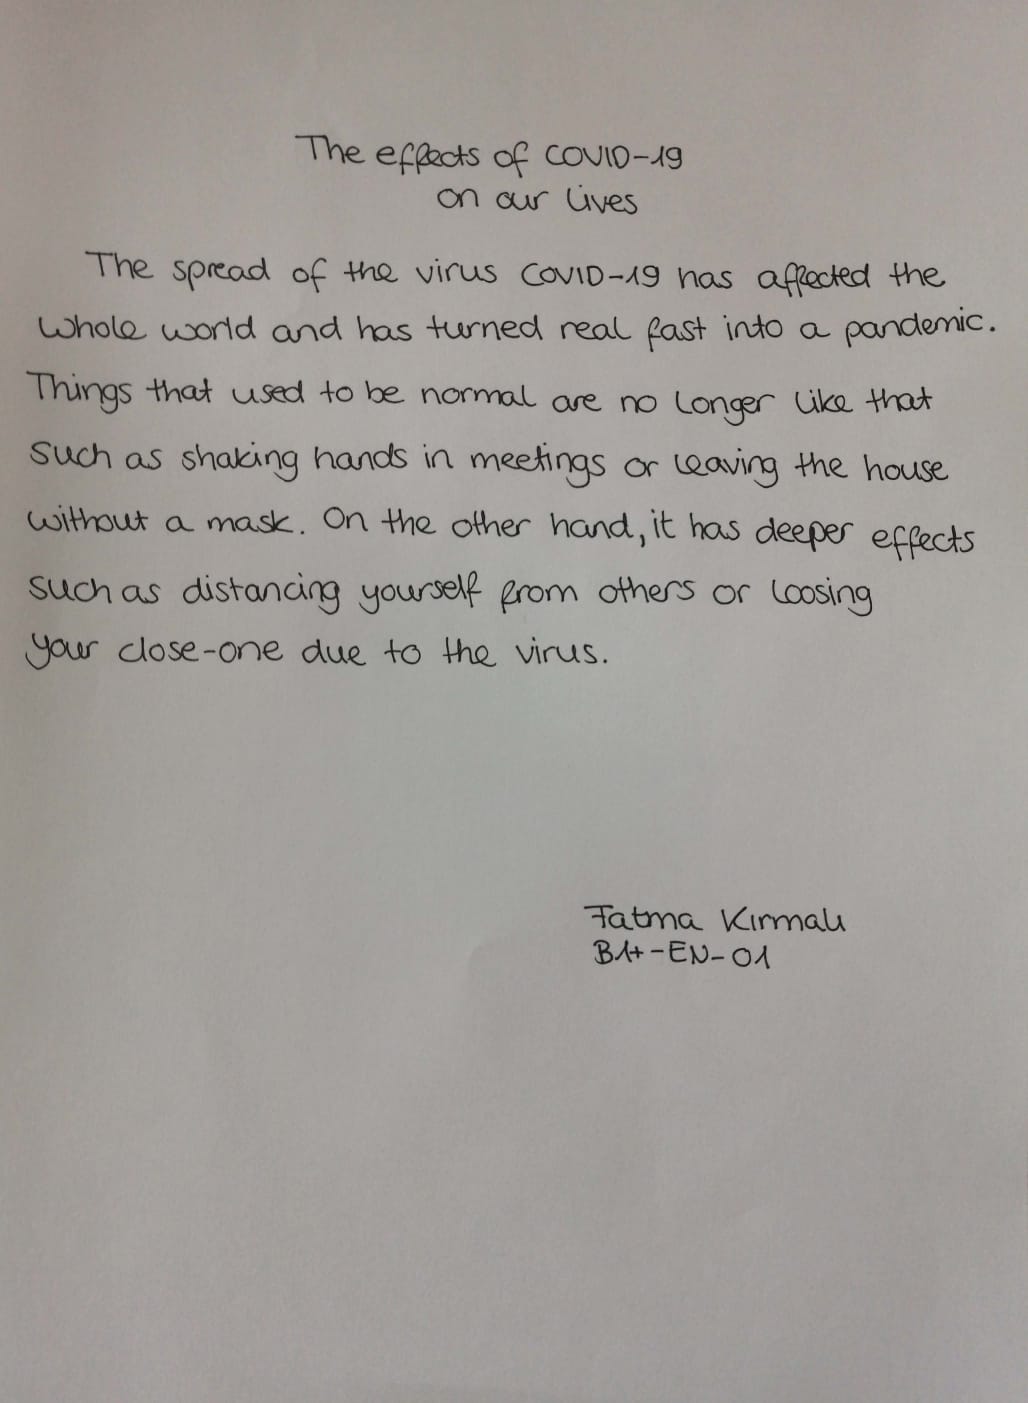 The effects of COVID-19
on our lives
The spread of the virus COVID-19 has affected the
whole world and has turned real fast into a pandemic.
Things that used to be normal are no longer like that
such as shaking hands in meetings or leaving the house
without a mask. On the other hand, it has deeper effects
such as distancing yourself from others or loosing
your close-one due to the virus.
Fatma Kırmalı
B1+-EN-01